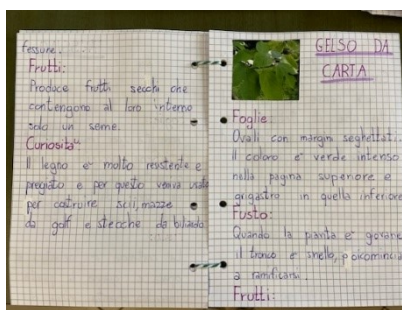 fessure.
Frutti:
Produce frutti secchi che
contengono al loro interno
solo un seme.
Curiosità:
Il legno e' molto resistente e
pregiato e per questo veniva usato
per costruire sci, mazze
da golf e stecche da biliardo.
GELSO DA
CARTA
Foglie:
Ovali con margini seghettati.
Il colore e' verde intenso
nella pagina superiore e
grigastro in quella inferiore
Fusto:
Quando la pianta e' giovane
il tronco e' snello, poi comincia
a ramificarsi.
Frutti: